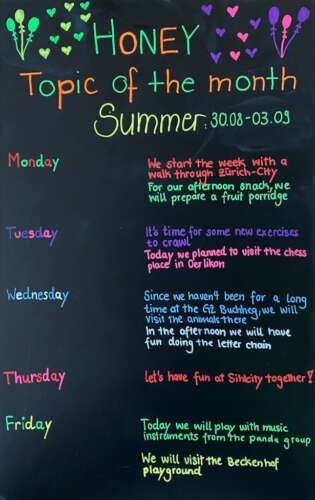 HONEY
Topic of the month
Summer: 30.08-03.09
Monday
We start the week with a
walk through Zürich-City
For our afternoon snack, we
will prepare a fruit porridge
Tuesday
It's time for some new exercises
to crawl
Today we planned to visit the chess
place in Oerlikon
Wednesday
Since we haven't been for a long
time at the GZ Buchheg, we will
visit the animals there
In the afternoon we will have
fun doing the letter chain
Thursday
Let's have fun at Sihlcity together!
Friday
Today we will play with music
instruments from the panda group
We will visit the Beckenhof
playground